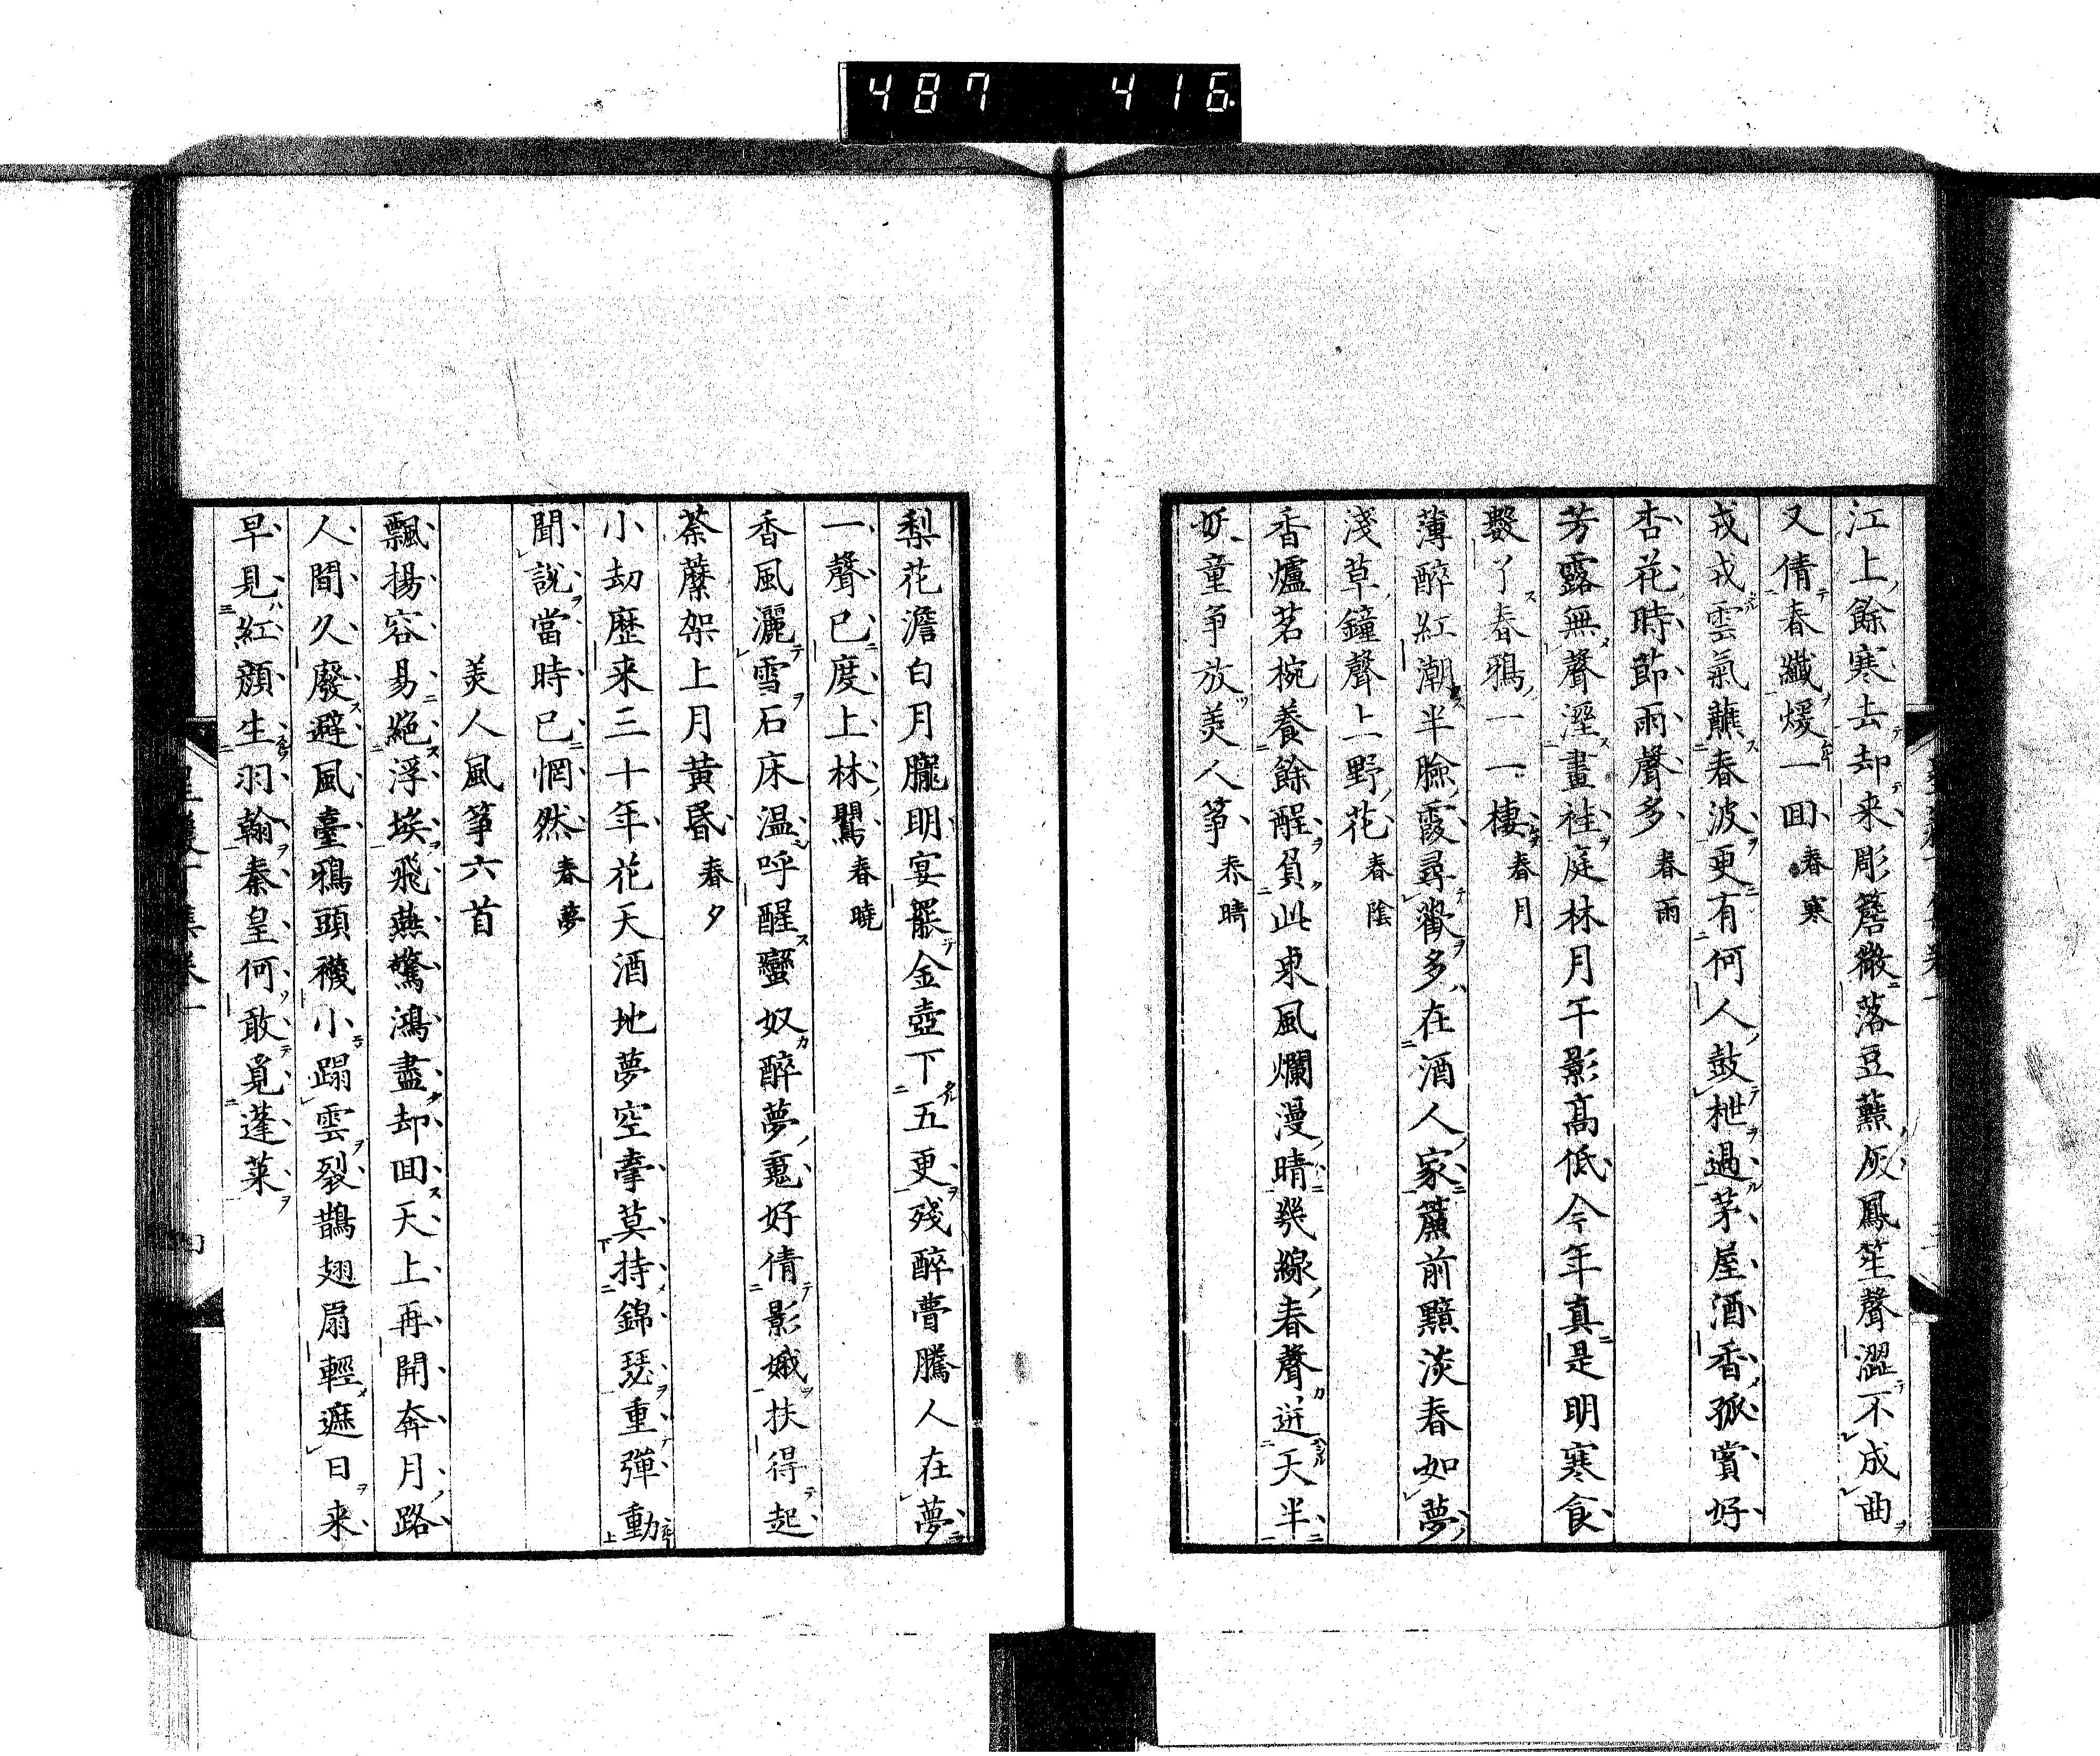 487 416
江上餘寒去却来彫簷薇落豆䕽灰鳳笙聲澀不成曲
又倩春纖煖一回春寒
戎戎雲氣蘸春波更有何人鼓枻過茅屋酒香孤賞好
杏花時節雨聲多春雨
芳露無聲溼畫袿庭林月午影高低今年真是明寒食
數丫春鴉一一棲春月
薄醉紅潮半臉霞尋歡多在酒人家簾前黯淡春如夢
淺草鐘聲上野花春陰
香爐茗椀養餘酲負此東風爛漫晴幾線春聲迸天半
妖童爭放美人箏春晴
梨花澹白月朧明宴罷金壺下五更殘醉瞢騰人在夢
一聲已度上林鶯春曉
香風灑雪石床温呼醒蠻奴醉夢魂好倩影娥扶得起
荼蘼架上月黃昏春夕
小劫歷来三十年花天酒地夢空牽莫持錦瑟重彈動
聞說當時已惘然春夢
美人風箏六首
飄揚容易絕浮埃飛燕驚鴻盡却回天上再開奔月路
人間久廢避風臺鴉頭襪小蹋雲裂鵲翅扇輕遮日来
早見紅顏生羽翰秦皇何敢覓蓬萊